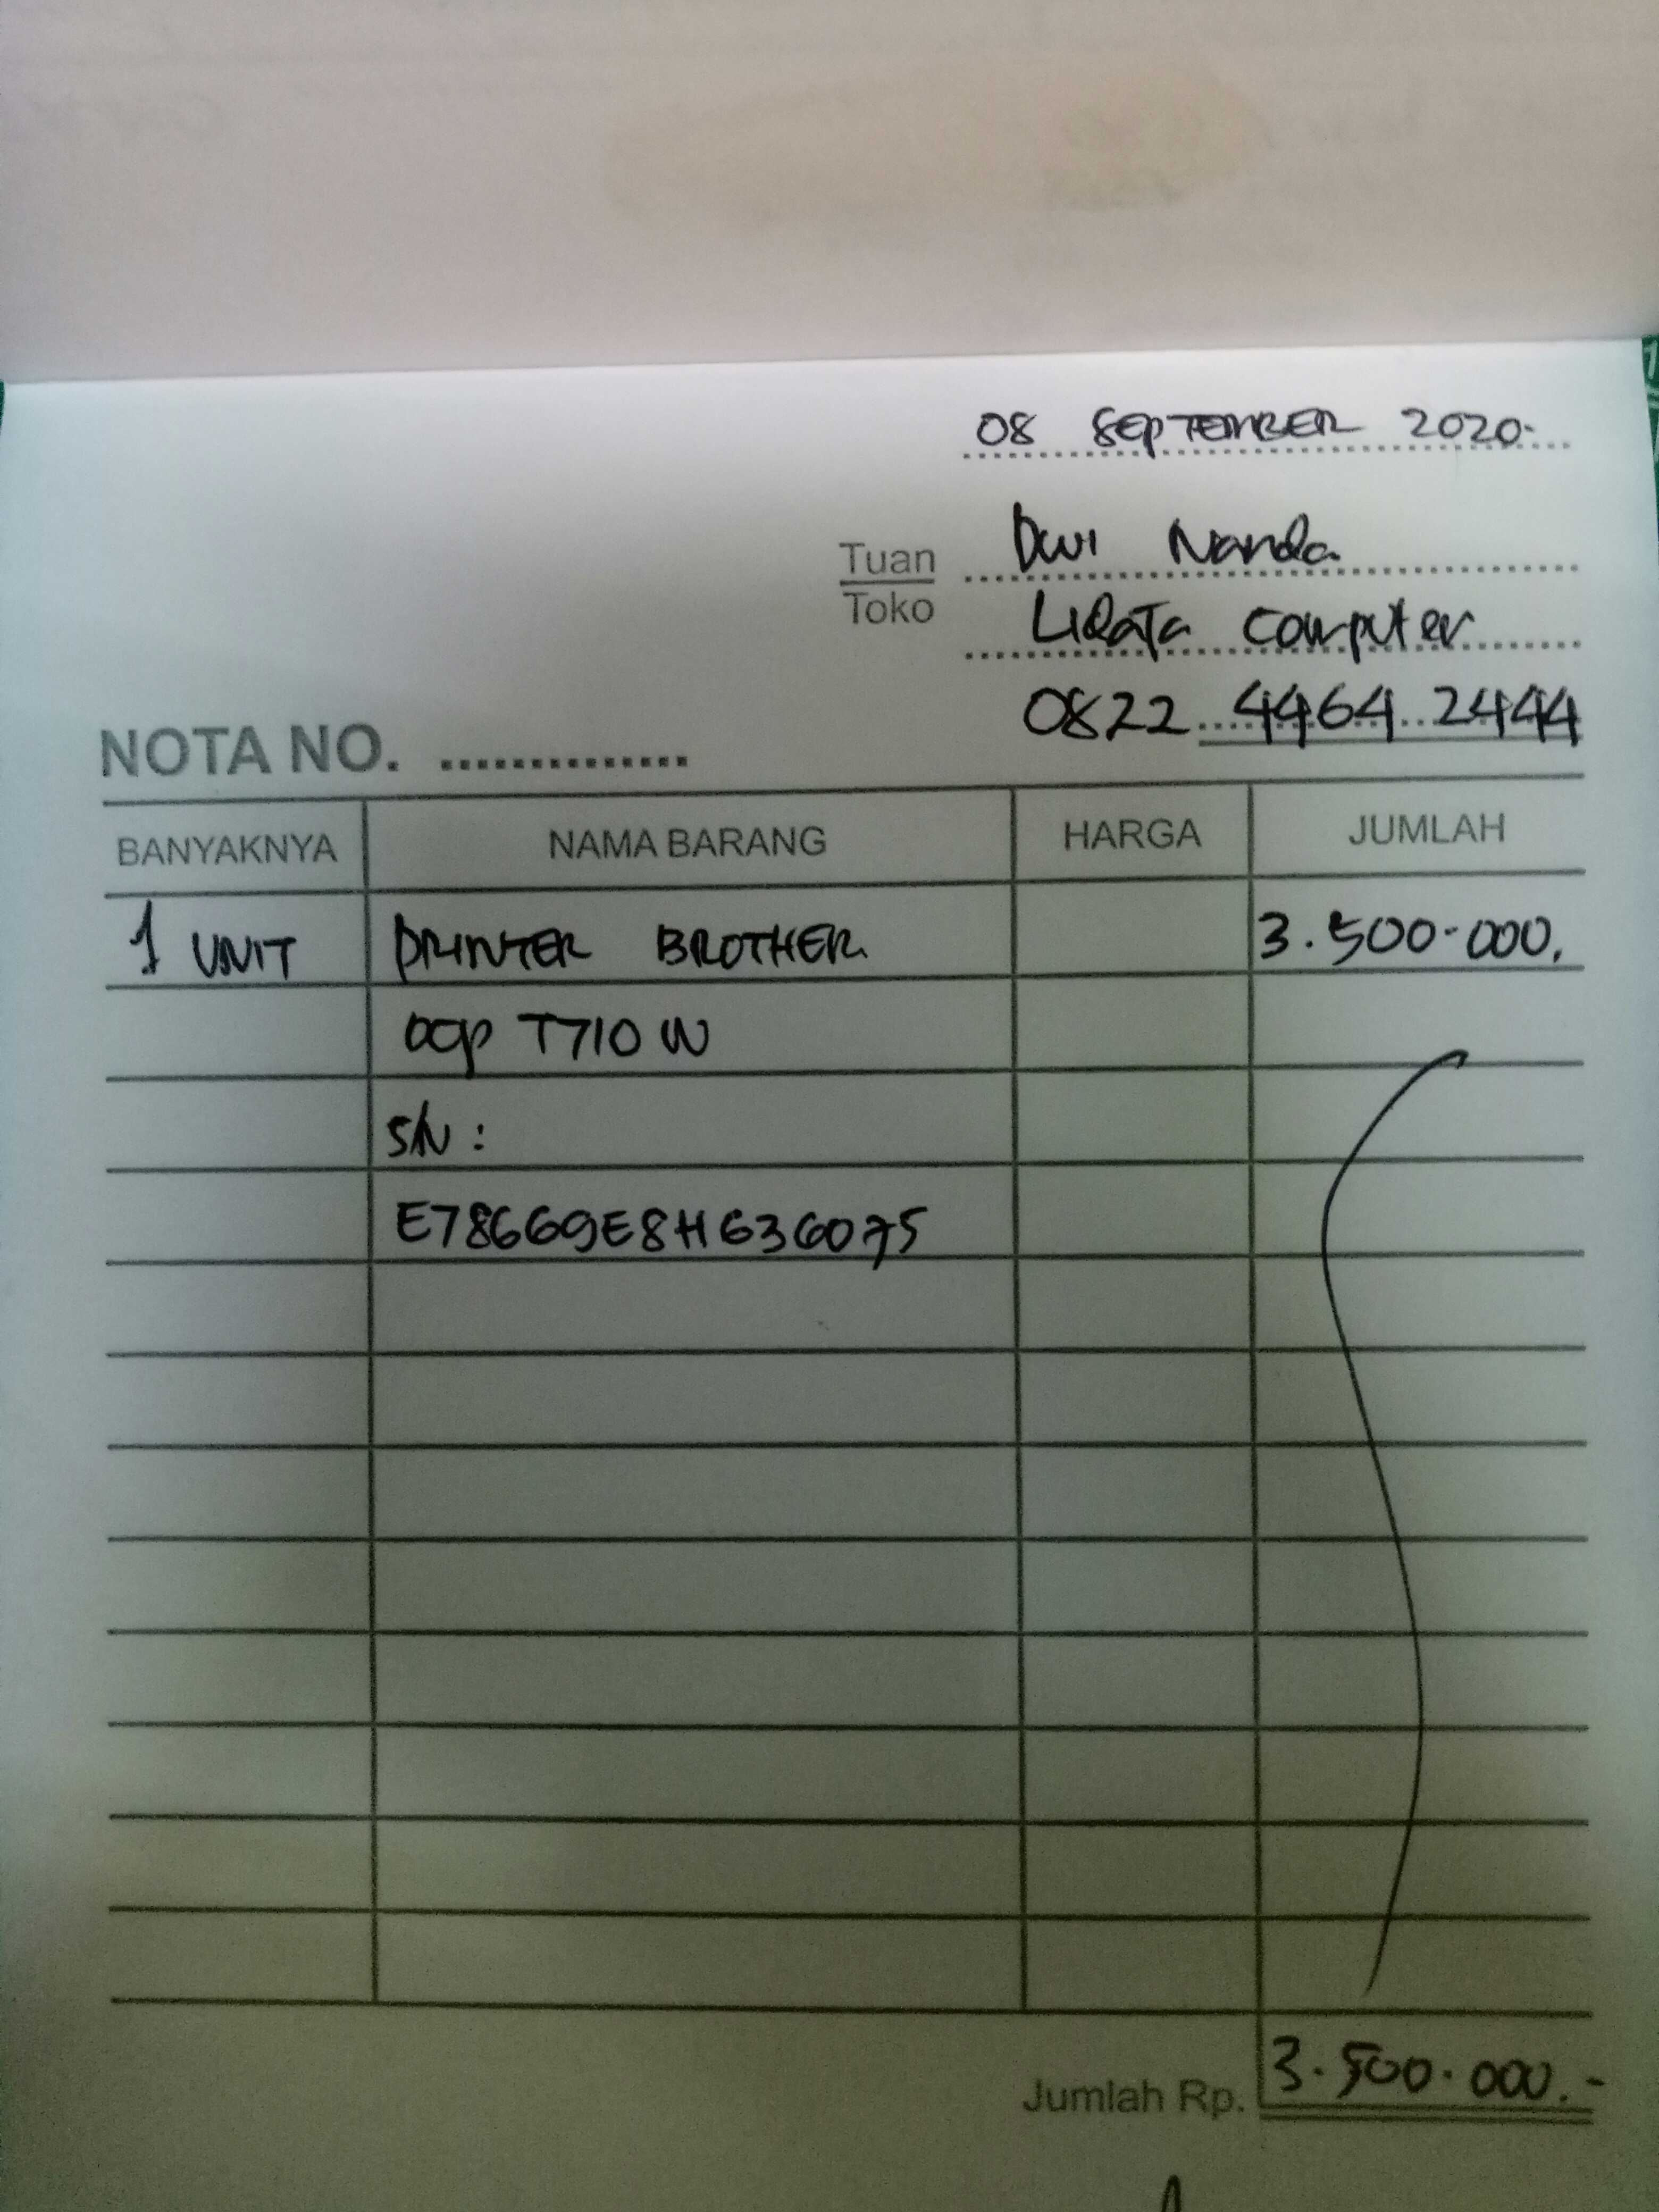 08 SEPTEMBER 2020
Tuan Dwi Nanda
Toko LiRaTa Computer
0822 4464 2444
NOTA NO. ...............
BANYAKNYA NAMA BARANG HARGA JUMLAH
1 UNIT PRINTER BROTHER 3.500.000,
DCP T710 W
S/N :
E78669E8H636075
Jumlah Rp. 3.500.000.-